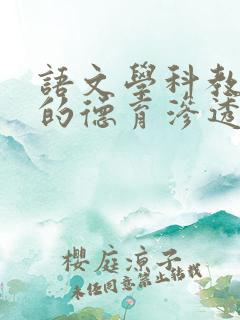 語文學科教
的德育滲透
櫻庭涼子
未經同意禁止轉載